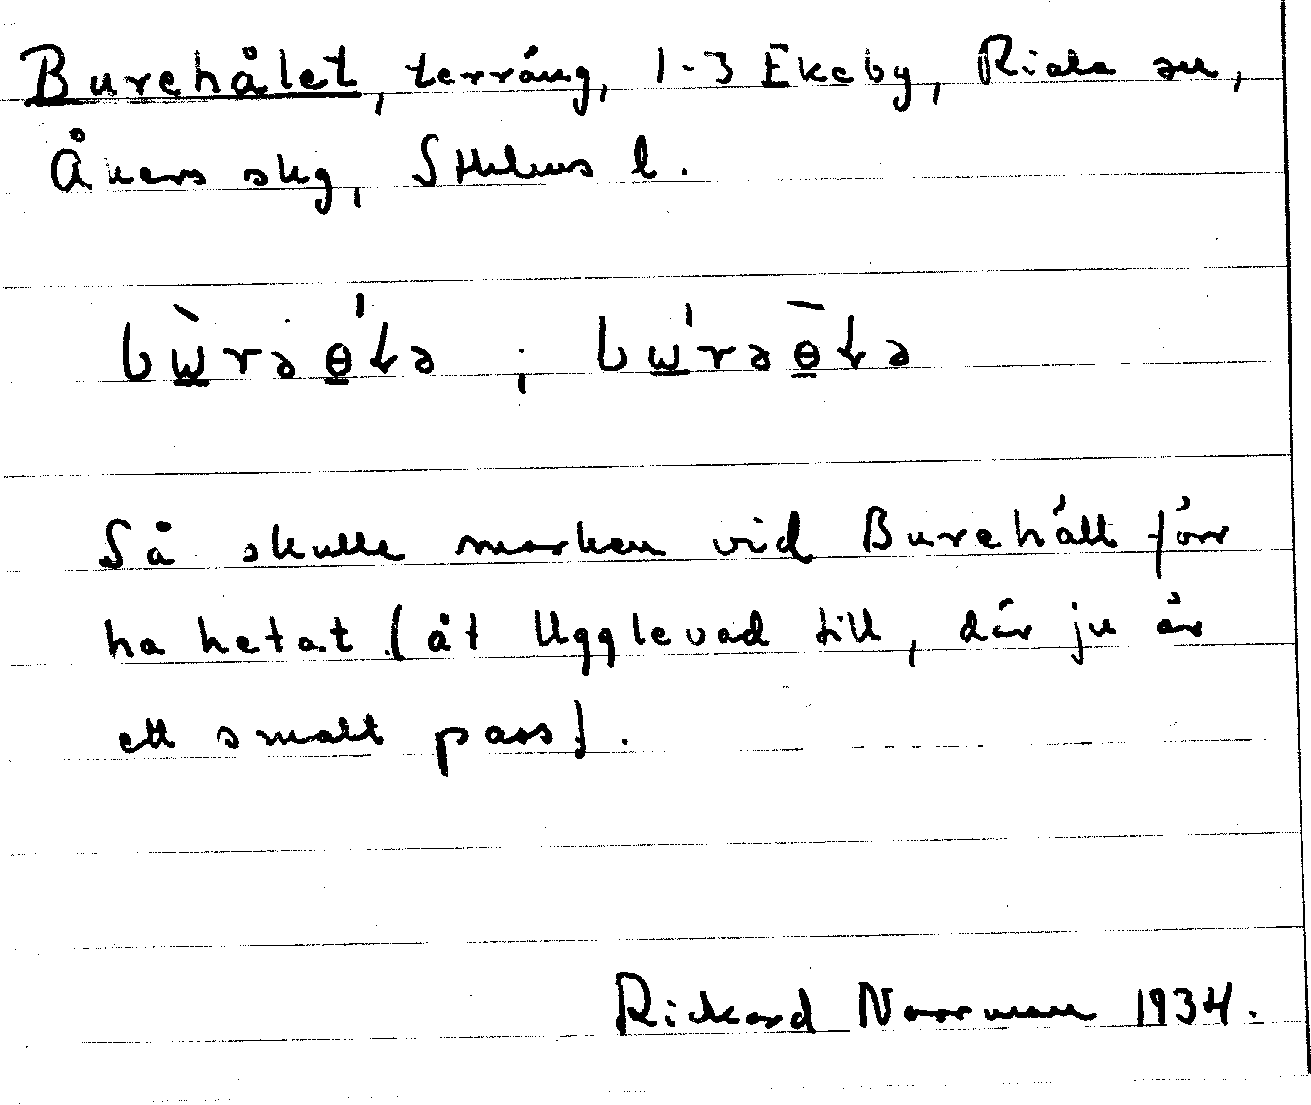 Burehålet, terräng, 1-3 Ekeby, Riala sn,
Åkers skg, Sthlms l.
bẁrəɵ'ɫə ; bẃrəɵ̄ɫə
Så skulle marken vid Burehåll förr
ha hetat (åt Ugglevad till, där ju är
ett smalt pass).
Rickard Norrman 1934.